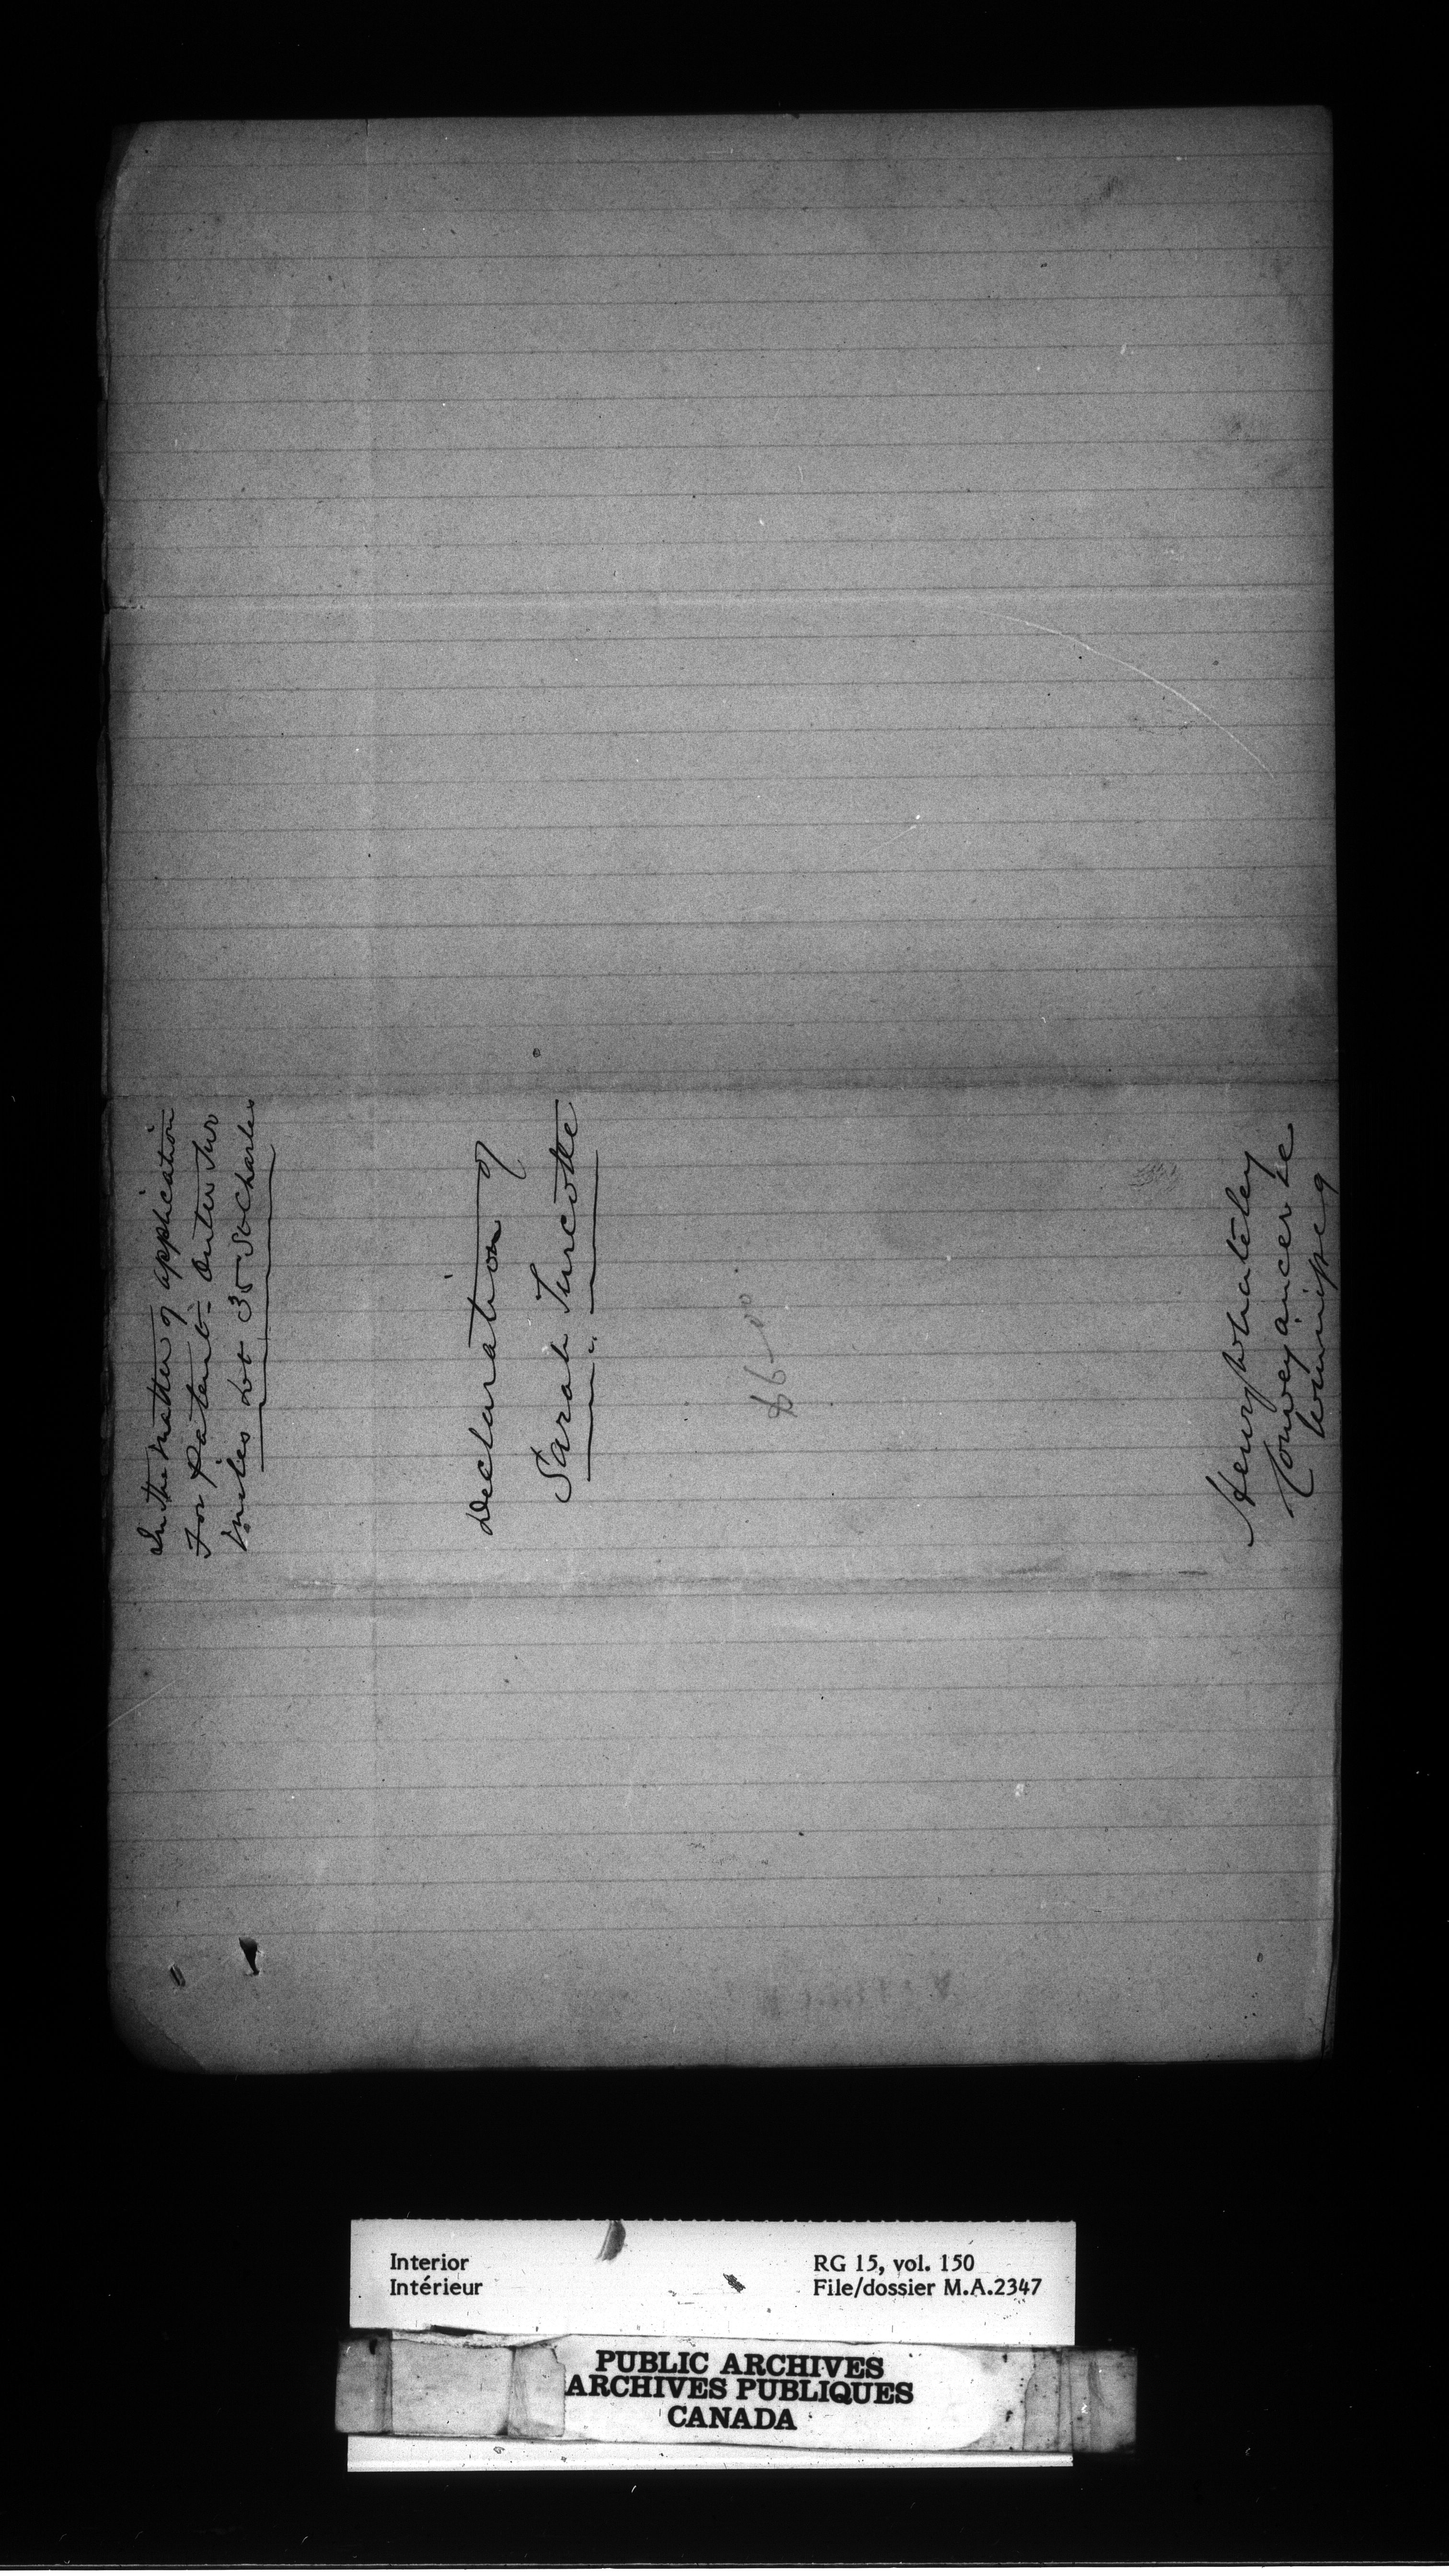 In the matter of application
For Patent - Outer Two
Miles Lot 35 St Charles
Declaration of
Sarah Turcotte
$6-00
Henry Whateley
Conveyancer &c
Winnipeg
Interior
Intérieur
RG 15, vol. 150
File/dossier M.A.2347
PUBLIC ARCHIVES
ARCHIVES PUBLIQUES
CANADA